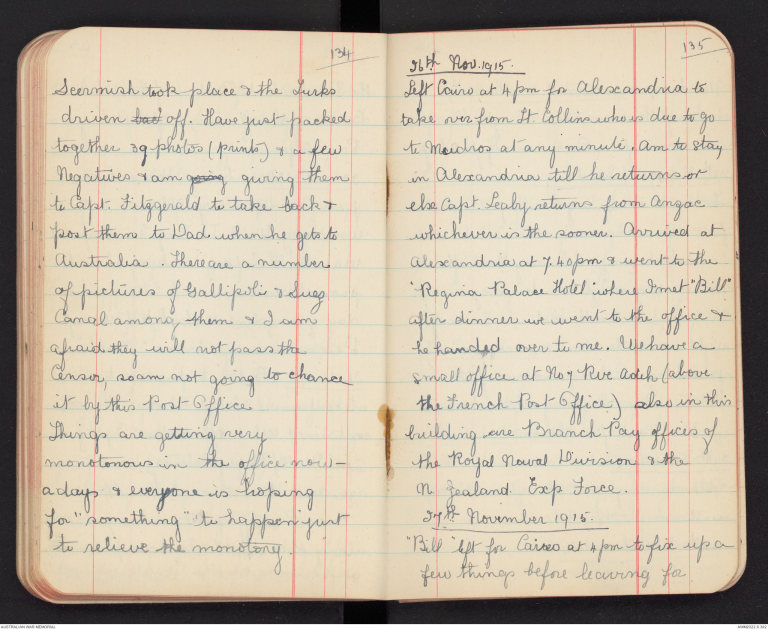 134
Scermish took place & the Turks
driven bac' off. Have just packed
together 39 photos (prints) & a few
Negatives & am going giving them
to Capt. Fitzgerald to take back &
post them to Dad when he gets to
Australia. There are a number
of pictures of Gallipoli & Suez
Canal among them & I am
afraid they will not pass the
Censor, so am not going to chance
it by this Post Office
Things are getting very
monotonous in the office now-
a days & everyone is hoping
for "something" to happen just
to relieve the monotony.
135
26th Nov. 1915.
Left Cairo at 4 pm for Alexandria to
take over from Lt. Collins who is due to go
to Mudros at any minute. Am to stay
in Alexandria till he returns or
else Capt. Lealy returns from Anzac
whichever is the sooner. Arrived at
Alexandria at 7.40pm & went to the
"Regina Palace Hotel" where I met "Bill"
after dinner we went to the office &
he handed over to me. We have a
small office at No 7 Rue Adib (above
the French Post Office) also in this
building are Branch Pay offices of
the Royal Naval Division & the
N Zealand Exp Force.
27th November 1915.
"Bill" left for Cairo at 4 pm to fix up a
few things before leaving for
AUSTRALIAN WAR MEMORIAL